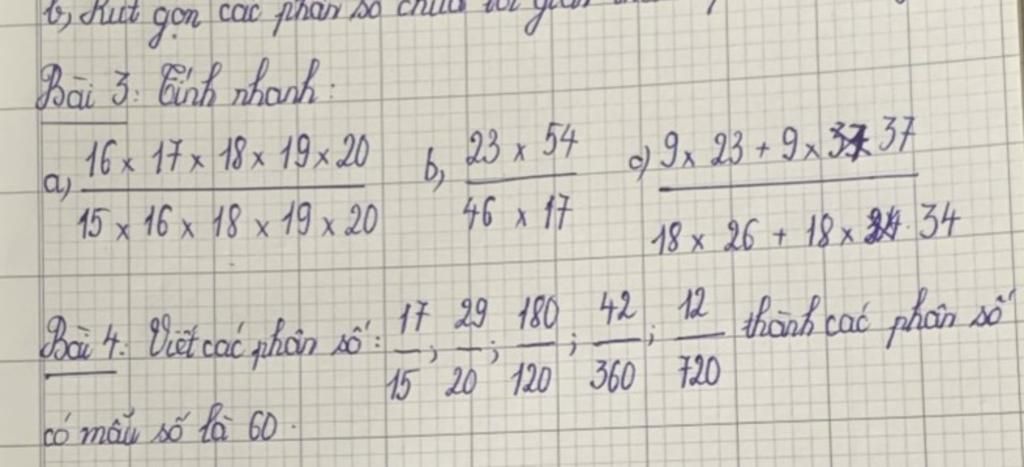 b, Rút gọn các phân số chưa tối giản
Bài 3: Tính nhanh:
a, 16 x 17 x 18 x 19 x 20 / 15 x 16 x 18 x 19 x 20 b, 23 x 54 / 46 x 17 c) 9 x 23 + 9 x 37 / 18 x 26 + 18 x 34
Bài 4: Viết các phân số: 17/15; 29/20; 180/120; 42/360; 12/720 thành các phân số
có mẫu số là 60.